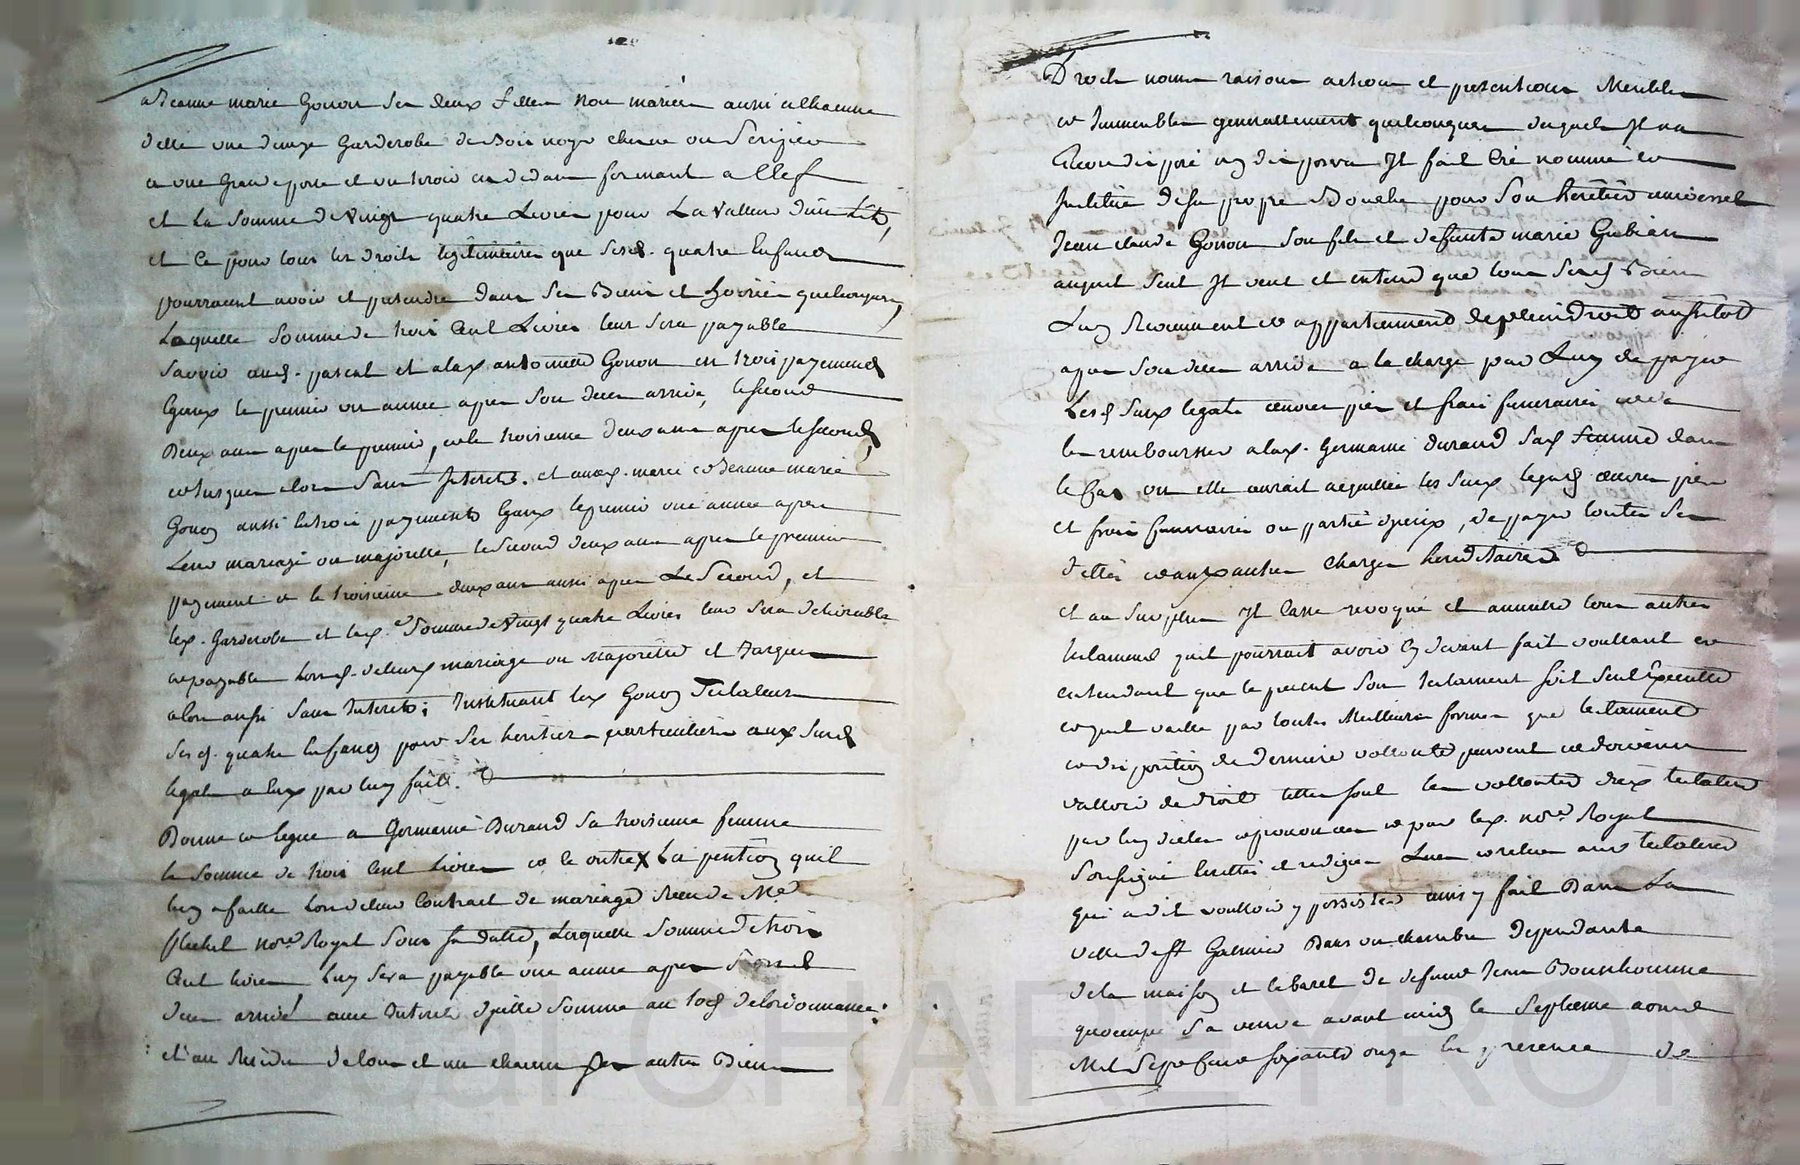 a Jeanne marie Gonon ses deux filles non mariées aussi a chacune
d'elle une Garderobe de Bois noyer chesne ou Serizier
a une Grande porte et un tiroir au dedans fermant a Clef
et La Somme de Vingt quatre Livres pour La Valleur d'un Lit,
et Ce pour tous les droits legitimaires que sesd. quatre Enfans
pourroient avoir et pretendre dans ses Biens et hoirie quelconques,
Laquelle Somme de trois Cent Livres leur sera payable
Savoir aud. pascal et a lad. antoinette Gonon en trois payements
Egaux le premier un année apres son deces arrivé, le second
Deux ans apres le premier, et le troisieme deux ans apres le second,
et jusques alors sans Interets. et auxd. marie et Jeanne marie
Gonon aussi en trois payements Egaux le premier une année apres
Leur mariage ou majorité, le second deux ans apres le premier
payement et le troisieme deux ans aussi apres Le Second, et
lesd. Garderobes et lad. Somme de Vingt quatre Livres leur sera delivrable
et payable lors de leurs mariage ou Majorité et Jusques
alors aussi sans Interets; Instituant led. Gonon Testateur
sesd. quatre Enfans pour ses heritiers particuliers aux susd.
legats a Eux par luy faits.
Donne et legue a Germaine Durand sa troisieme femme
la Somme de trois Cent Livres et ce outre La pention qu'il
luy a faitte Lors de leur Contract de mariage Receu de Me
not.re Royal Sous sa datte, Laquelle Somme de trois
Cent livres luy sera payable une année apres
deces arrivé avec Interets d'icelle Somme au tos de lordonnance.
et au Residu de tous et un chacun ses autres Biens
Droits noms raisons actions et pretentions Meubles
et Immeubles generallement quelconques desquels Il n'a
Cy dessus disposé ny disposera Il fait Cré nomme et
Institue de sa propre Bouche pour son heritier universel
Jean claude Gonon son fils et de defunte marie Gubian
auquel seul Il veut et entend que tous sesd. Biens
Luy Reviennent et appartiennent de plein Droit aussitost
apres son deces arrivé a la charge par Luy de payer
Lesd. Susd. legats œuvres pies et frais funeraires et de
les rembourser a lad. Germaine durand sad. femme dans
le Cas ou elle auroit acquitté les susd. legats œuvres pies
et frais funeraires ou partie d'yceux, de payer toutes ses
dettes et aux autres Charges hereditaires
et au surplus Il casse revoque et annulle tous autres
testaments qu'il pourrait avoir Cy devant fait voullant et
entendant que le present son testament soit seul Executté
et qu'il vaille par toutes Meilleures formes que testament
et disposition de derniere vollonté peuvent et doivent
valloir de droit telles sont les vollontés dud. testateur
par luy dictées et prononcées et par led. nore. Royal
Soussigné Ecrittes et redigées Lues et relues aud. testateur
qui a dit voulloir y persister ainsy fait Dans La
ville de St Galmier Dans un chambre dependante
de la maison et Cabaret de defunt Jean Bounhomme
qu'occupe sa veuve avant midy le Septieme aoust
Mil Sept Cent soixante onze En presence de
CHAREYRON